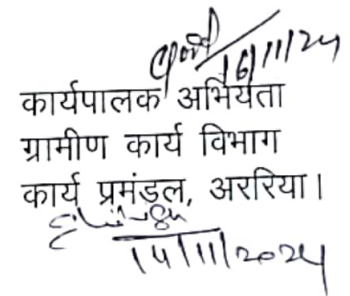 16/11/24
कार्यपालक अभियंता
ग्रामीण कार्य विभाग
कार्य प्रमंडल, अररिया।
14/11/2024